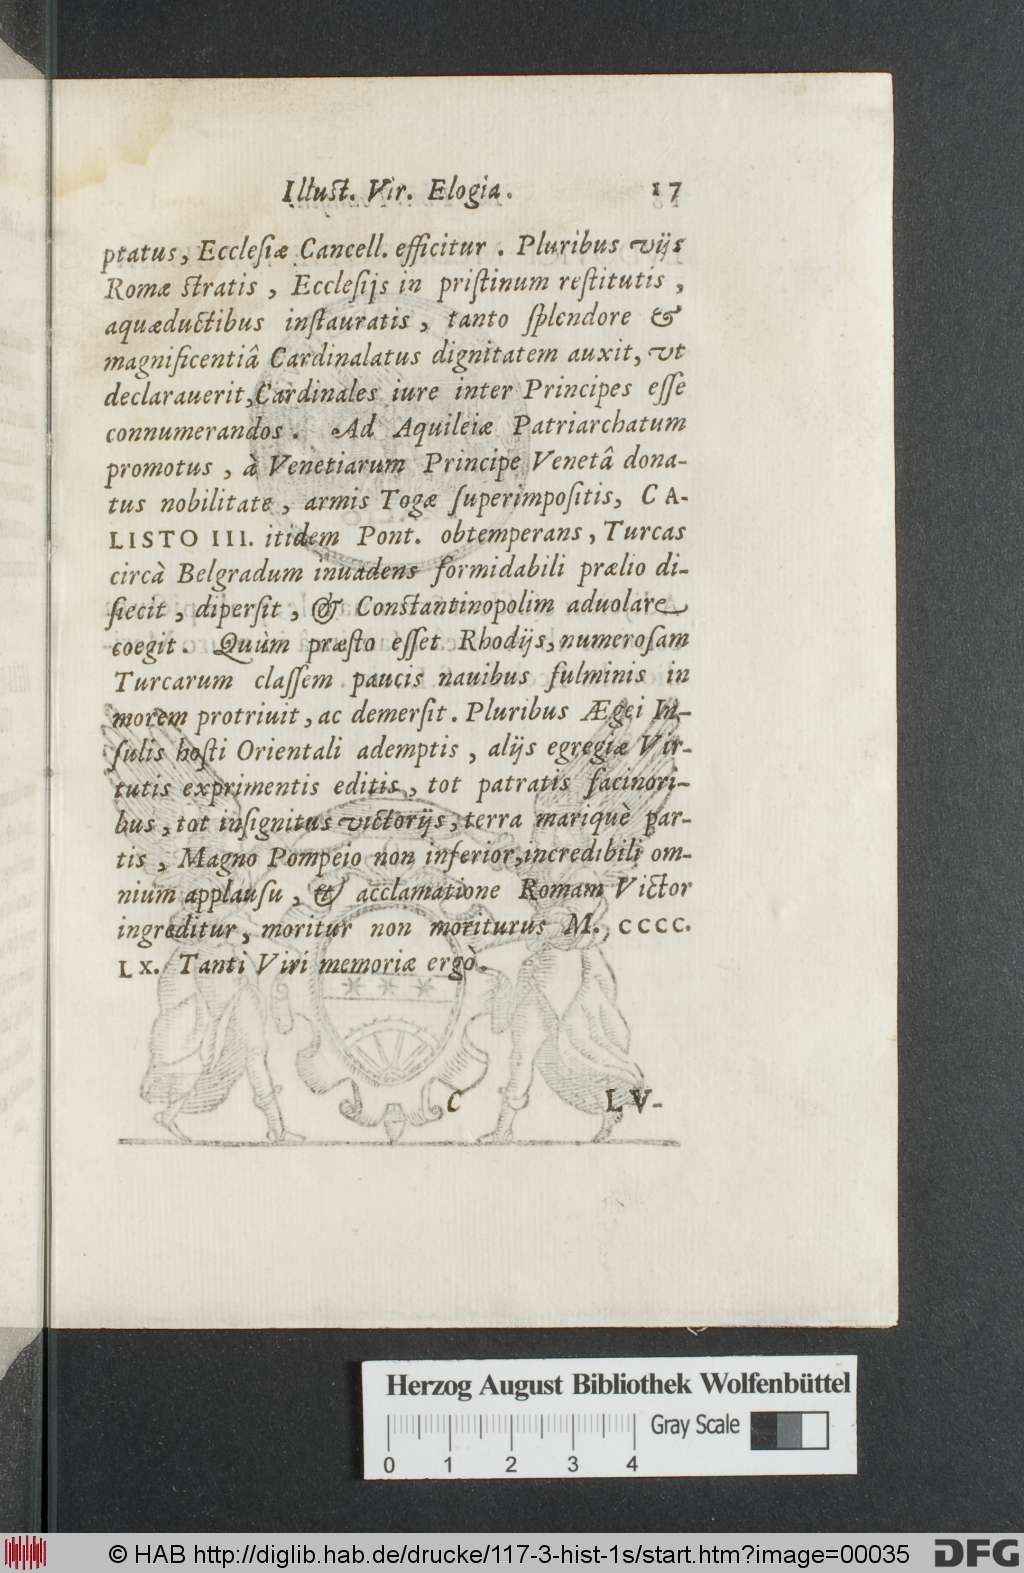 Illuſt. Vir. Elogia. 17
ptatus, Eccleſiæ Cancell. efficitur. Pluribus vijs
Romæ ſtratis, Eccleſijs in priſtinum reſtitutis,
aquæductibus inſtauratis, tanto ſplendore &
magnificentiâ Cardinalatus dignitatem auxit, vt
declarauerit, Cardinales iure inter Principes eſſe
connumerandos. Ad Aquileiæ Patriarchatum
promotus, à Venetiarum Principe Venetâ dona-
tus nobilitate, armis Togæ ſuperimpoſitis, CA-
LISTO III. itidem Pont. obtemperans, Turcas
circà Belgradum inuadens formidabili prælio di-
ſiecit, diperſit, & Conſtantinopolim aduolare
coegit. Quùm præſto eſſet Rhodijs, numeroſam
Turcarum claſſem paucis nauibus fulminis in
morem protriuit, ac demerſit. Pluribus Ægei In-
ſulis hoſti Orientali ademptis, alijs egregiæ Vir-
tutis exprimentis editis, tot patratis facinori-
bus, tot inſignitus victorijs, terra mariquè par-
tis, Magno Pompeio non inferior, incredibili om-
nium applauſu, & acclamatione Romam Victor
ingreditur, moritur non moriturus M. CCCC.
LX. Tanti Viri memoriæ ergò.
C LV-
Herzog August Bibliothek Wolfenbüttel
Gray Scale
0 1 2 3 4
© HAB http://diglib.hab.de/drucke/117-3-hist-1s/start.htm?image=00035 DFG